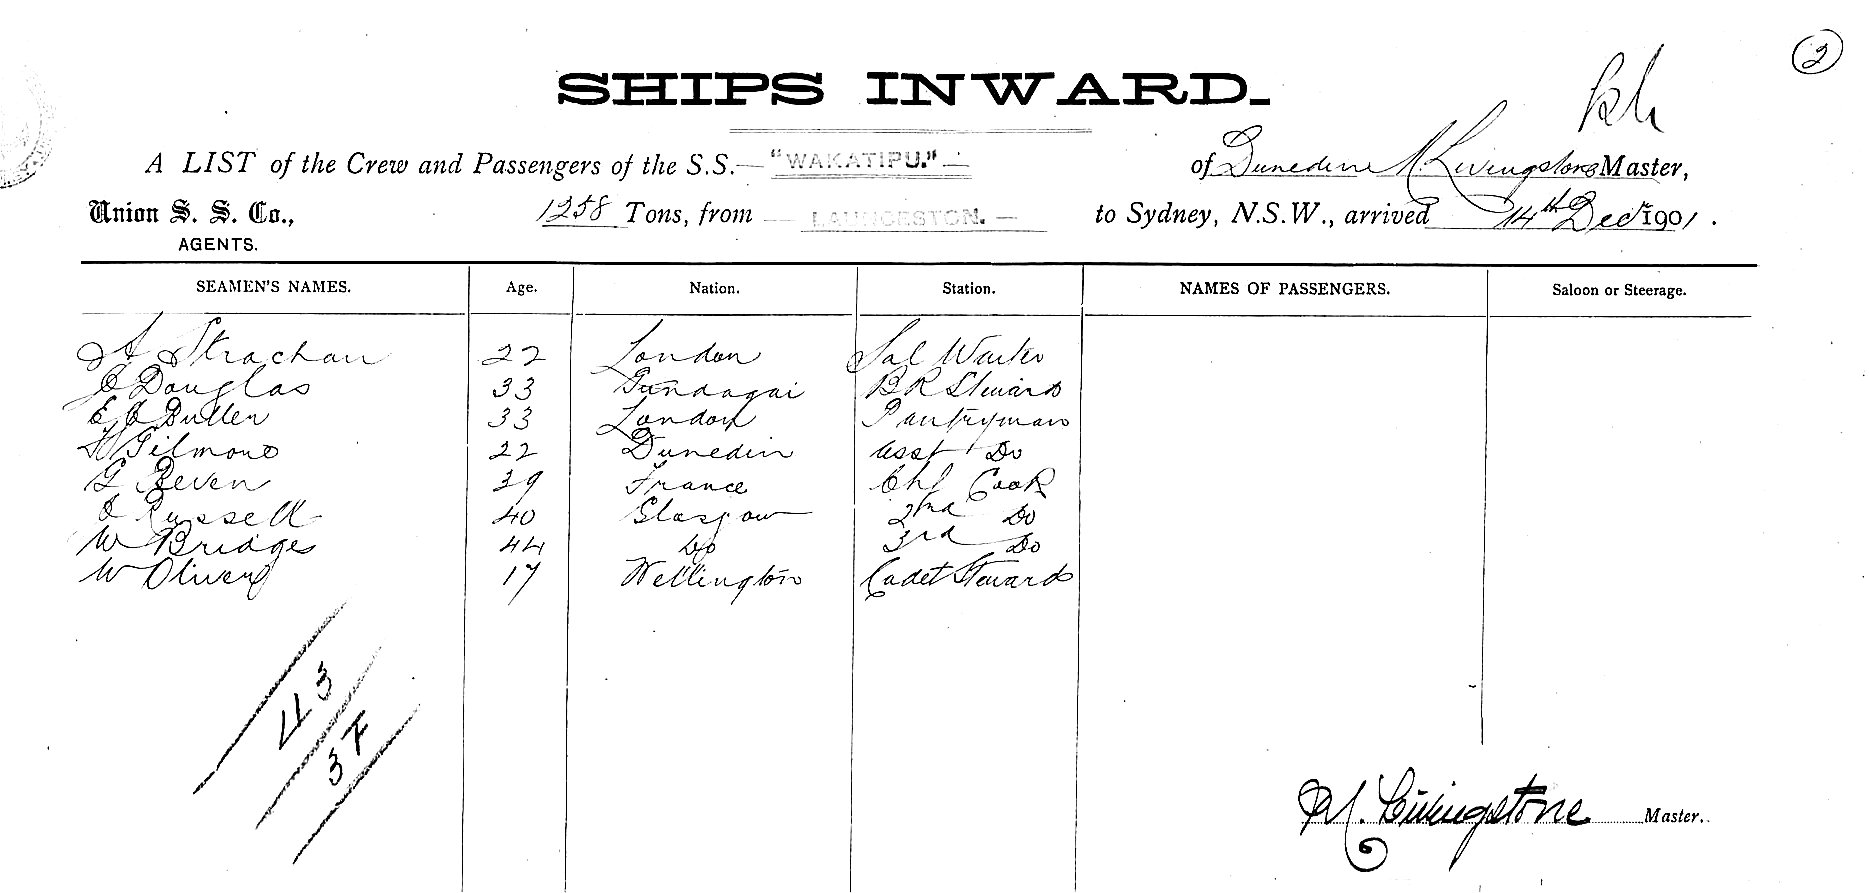 2
SHIPS INWARD.
A LIST of the Crew and Passengers of the S.S. "WAKATIPU." of Dunedin M. Livingstone Master,
Union S. S. Co., 1258 Tons, from LAUNCESTON. to Sydney, N.S.W., arrived 14th Decr 1901.
AGENTS.
SEAMEN'S NAMES. Age. Nation. Station. NAMES OF PASSENGERS. Saloon or Steerage.
A Strachan 22 London Sal Waiter
J Douglas 33 Gundagai B R Steward
E J Butler 33 London Pantryman
Gilmore 22 Dunedin Asst Do
G Beven 39 France Chf Cook
J Russell 40 Glasgow 2nd Do
W Bridges 44 Do 3rd Do
W Oliver 17 Wellington Cadet Steward
43
3F
M. Livingstone Master.